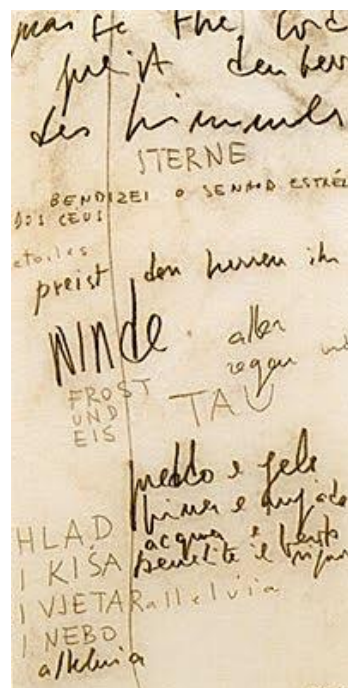 praise the Lord
preist den herr
des himmels
STERNE
BENDIZEI O SENHOR ESTRÊL
DOS CÉUS
etoiles
preist den herren ihr
WINDE aller
regen und
FROST
UND
EIS
TAU
freddo e gelo
acqua e
benedite il
HLAD
I KIŠA
I VJETAR alleluia
I NEBO
alleluia